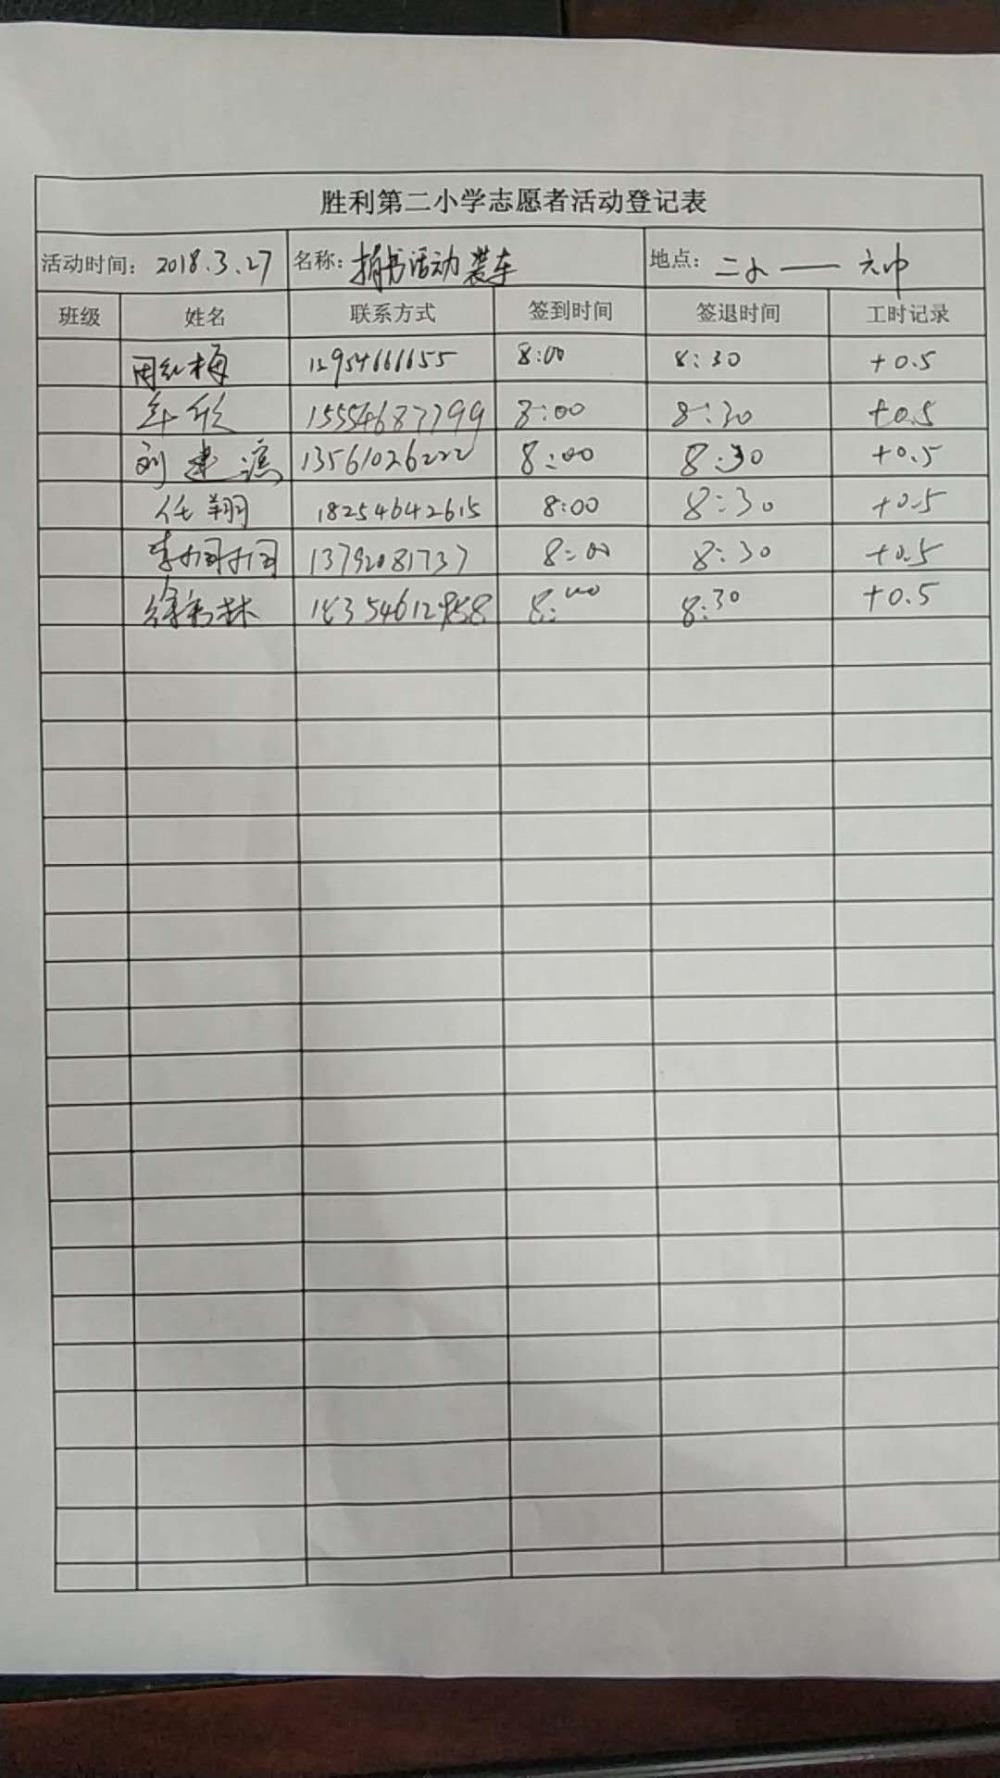 胜利第二小学志愿者活动登记表
活动时间: 2018.3.27 名称: 捐书活动装车 地点: 二小 —— 六中
班级 姓名 联系方式 签到时间 签退时间 工时记录
周红梅 8:00 8:30 +0.5
年欣 15554687799 8:00 8:30 +0.5
刘建 13561026222 8:00 8:30 +0.5
任翔 18254642615 8:00 8:30 +0.5
李娟娟 13792081737 8:00 8:30 +0.5
徐 林 8:00 8:30 +0.5